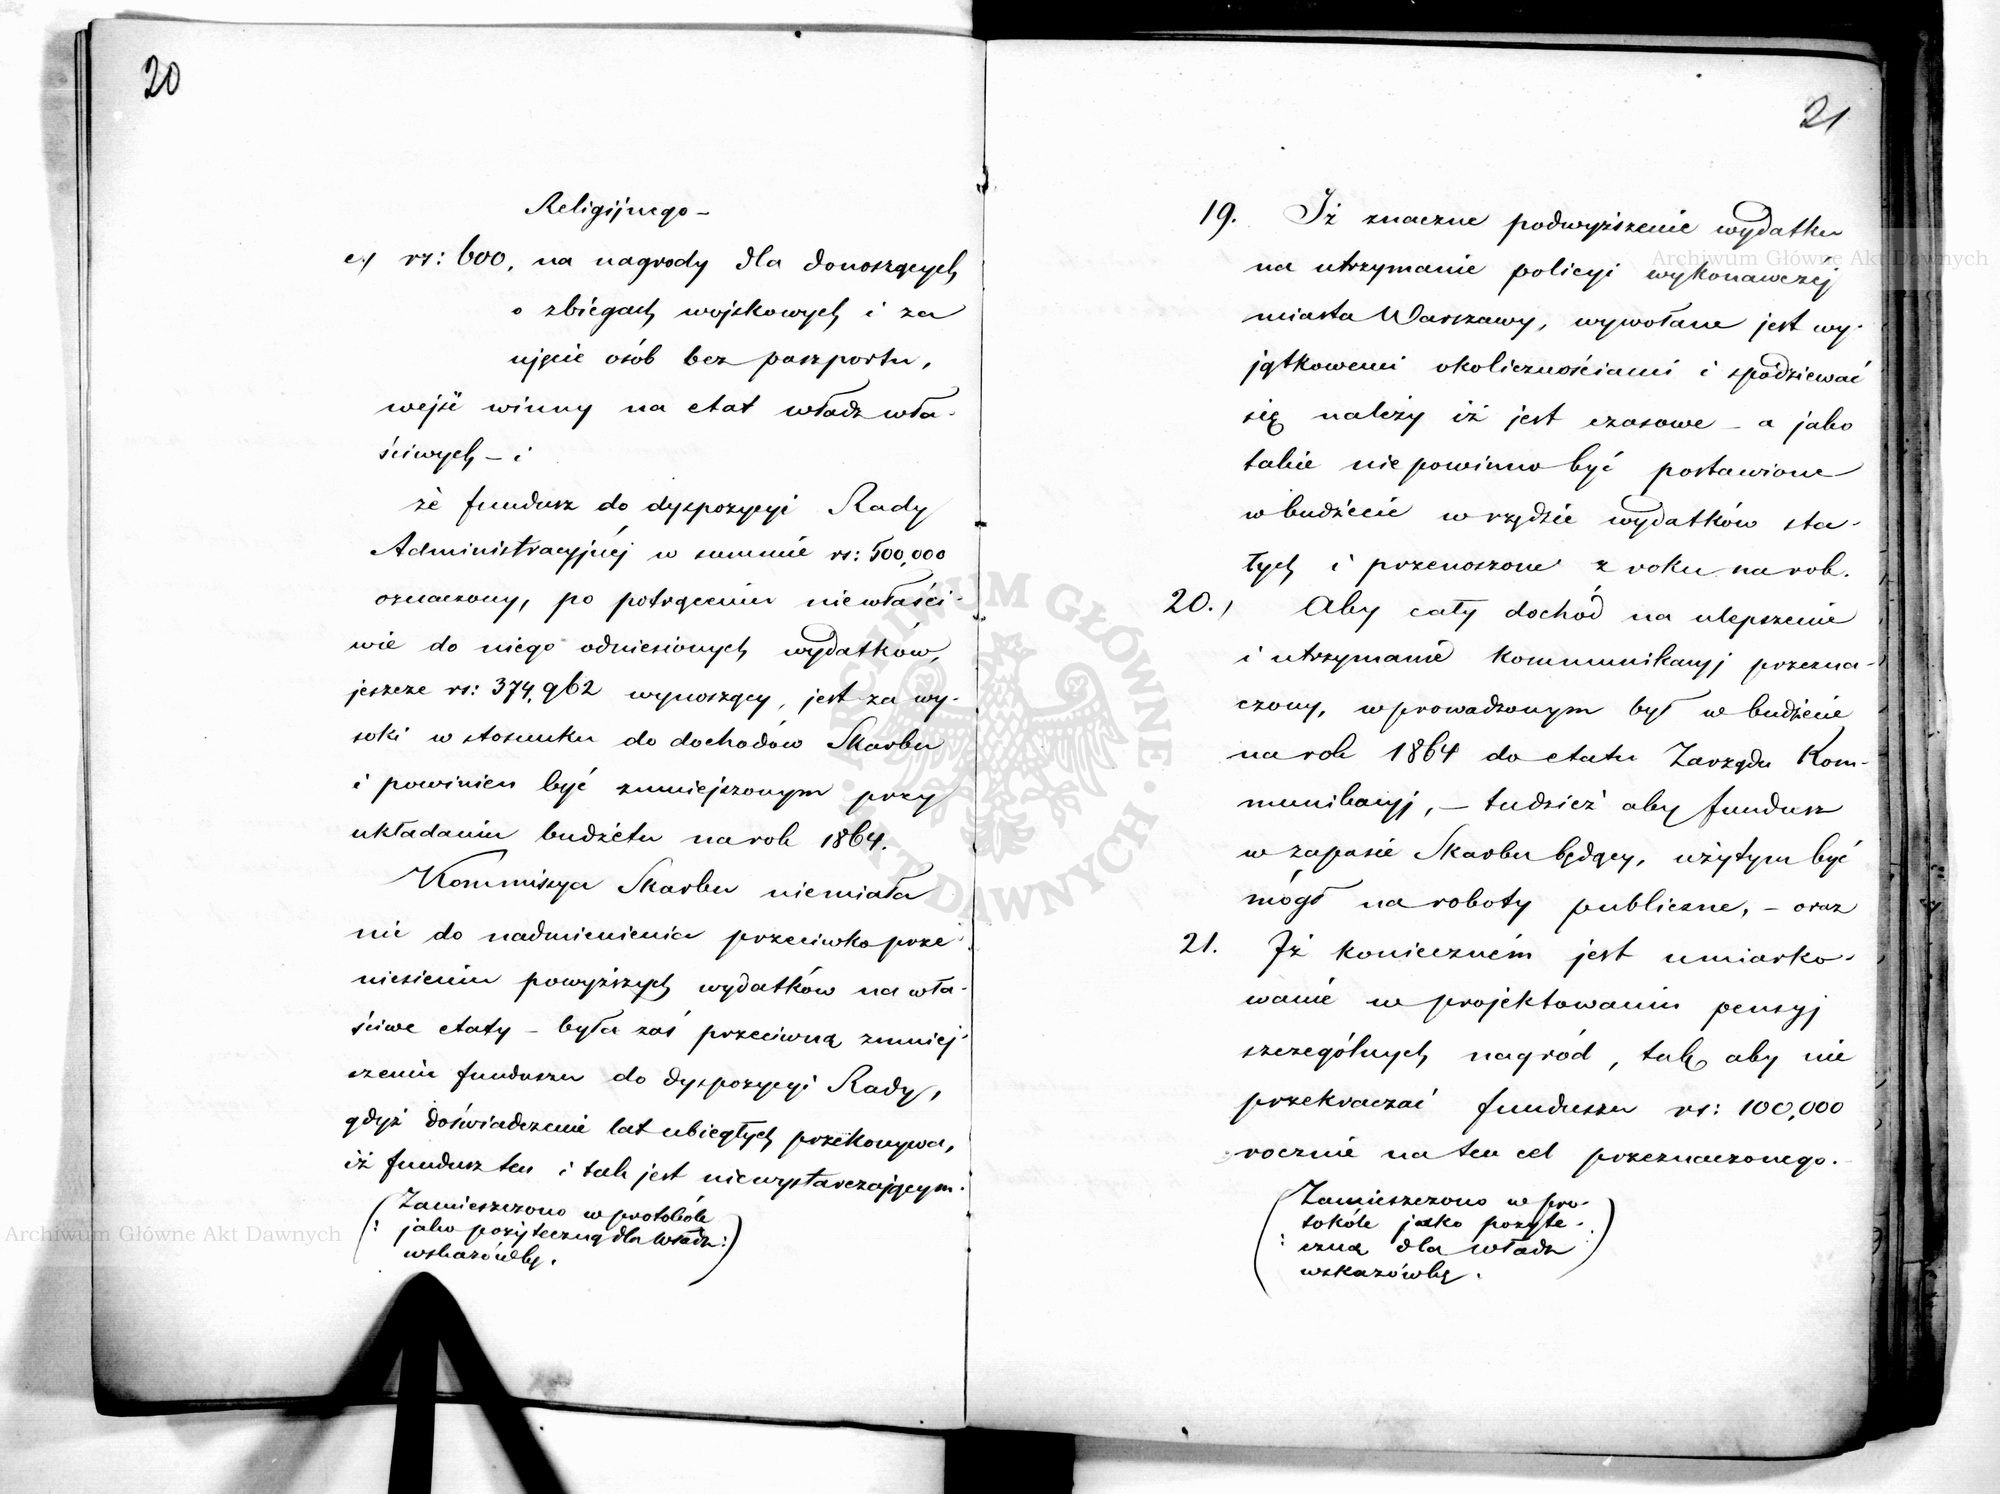 20
Religijnego –
e) rs: 600, na nagrody dla donoszących
o zbiegach wojskowych i za
ujęcie osób bez paszportu,
wejść winny na etat władz wła-
ściwych – i
że fundusz do dyspozycyi Rady
Administracyjnéj w summie rs: 500,000
oznaczony, po potrąceniu niewłaści-
wie do niego odniesionych wydatków,
jeszcze rs: 374,962 wynoszący, jest za wy-
soki w stosunku do dochodów Skarbu
i powinien być zmniejszonym przy
układaniu budżetu na rok 1864.
Kommissya Skarbu niemiała
nic do nadmienienia przeciwko prze-
niesieniu powyższych wydatków na wła-
ściwe etaty – była zaś przeciwną zmniej-
szeniu funduszu do dyspozycyi Rady,
gdyż doświadczenie lat ubiegłych przekonywa,
iż fundusz ten i tak jest niewystarczającym.
(Zamieszczono w protokóle
: jako pożyteczną dla władz :)
wskazówkę.
21
19. Iż znaczne podwyższenie wydatku
na utrzymanie policyi wykonawczéj
miasta Warszawy, wywołane jest wy-
jątkowemi okolicznościami i spodziewać
się należy iż jest czasowe – a jako
takie niepowinno być postawione
w budżecie w rzędzie wydatków sta-
łych i przenoszone z roku na rok.
20.) Aby cały dochód na ulepszenie
i utrzymanie kommunikacyj przezna-
czony, wprowadzonym był w budżecie
na rok 1864 do etatu Zarządu Kom-
munikacyj, – tudzież aby fundusz
w zapasie Skarbu będący, użytym być
mógł na roboty publiczne, – oraz
21. Iż konieczném jest umiarko-
wanie w projektowaniu pensyj
szczególnych nagród, tak aby nie
przekraczać funduszu rs: 100,000
rocznie na ten cel przeznaczonego.
(Zamieszczono w pro-
tokóle jako pożyte-
: czną dla władz :)
wskazówkę.
Archiwum Główne Akt Dawnych
Archiwum Główne Akt Dawnych
ARCHIWUM GŁÓWNE · AKT DAWNYCH ·